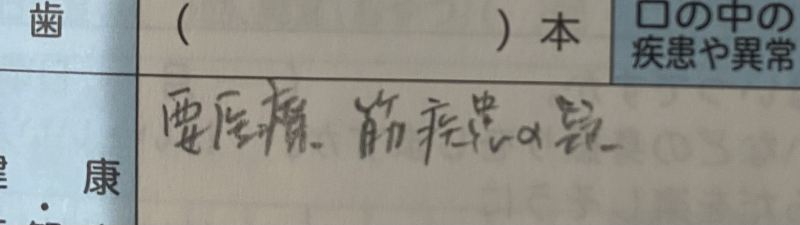 歯 ( ) 本 口の中の
疾患や異常
要医療. 筋疾患の
康